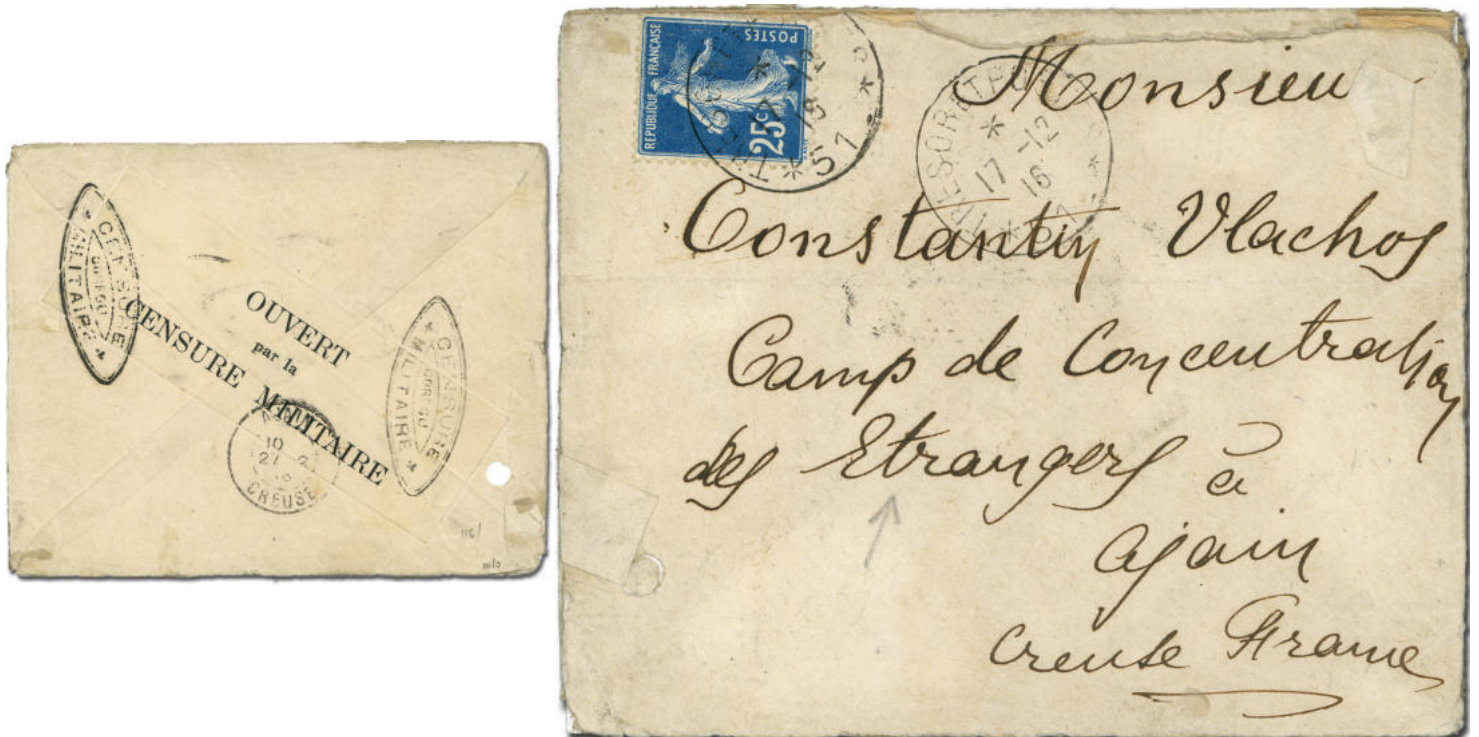 CENSURE
CORFOU
MILITAIRE
OUVERT
par la
CENSURE MILITAIRE
CENSURE
CORFOU
MILITAIRE
10
27
CREUSE
REPUBLIQUE FRANÇAISE
POSTES
25c
17 -12
16
* 51 *
TRESOR ET POSTES
17 -12
16
Monsieur
Constantin Vlachos
Camp de Concentration
des Etrangers à
Ajain
Creuse France